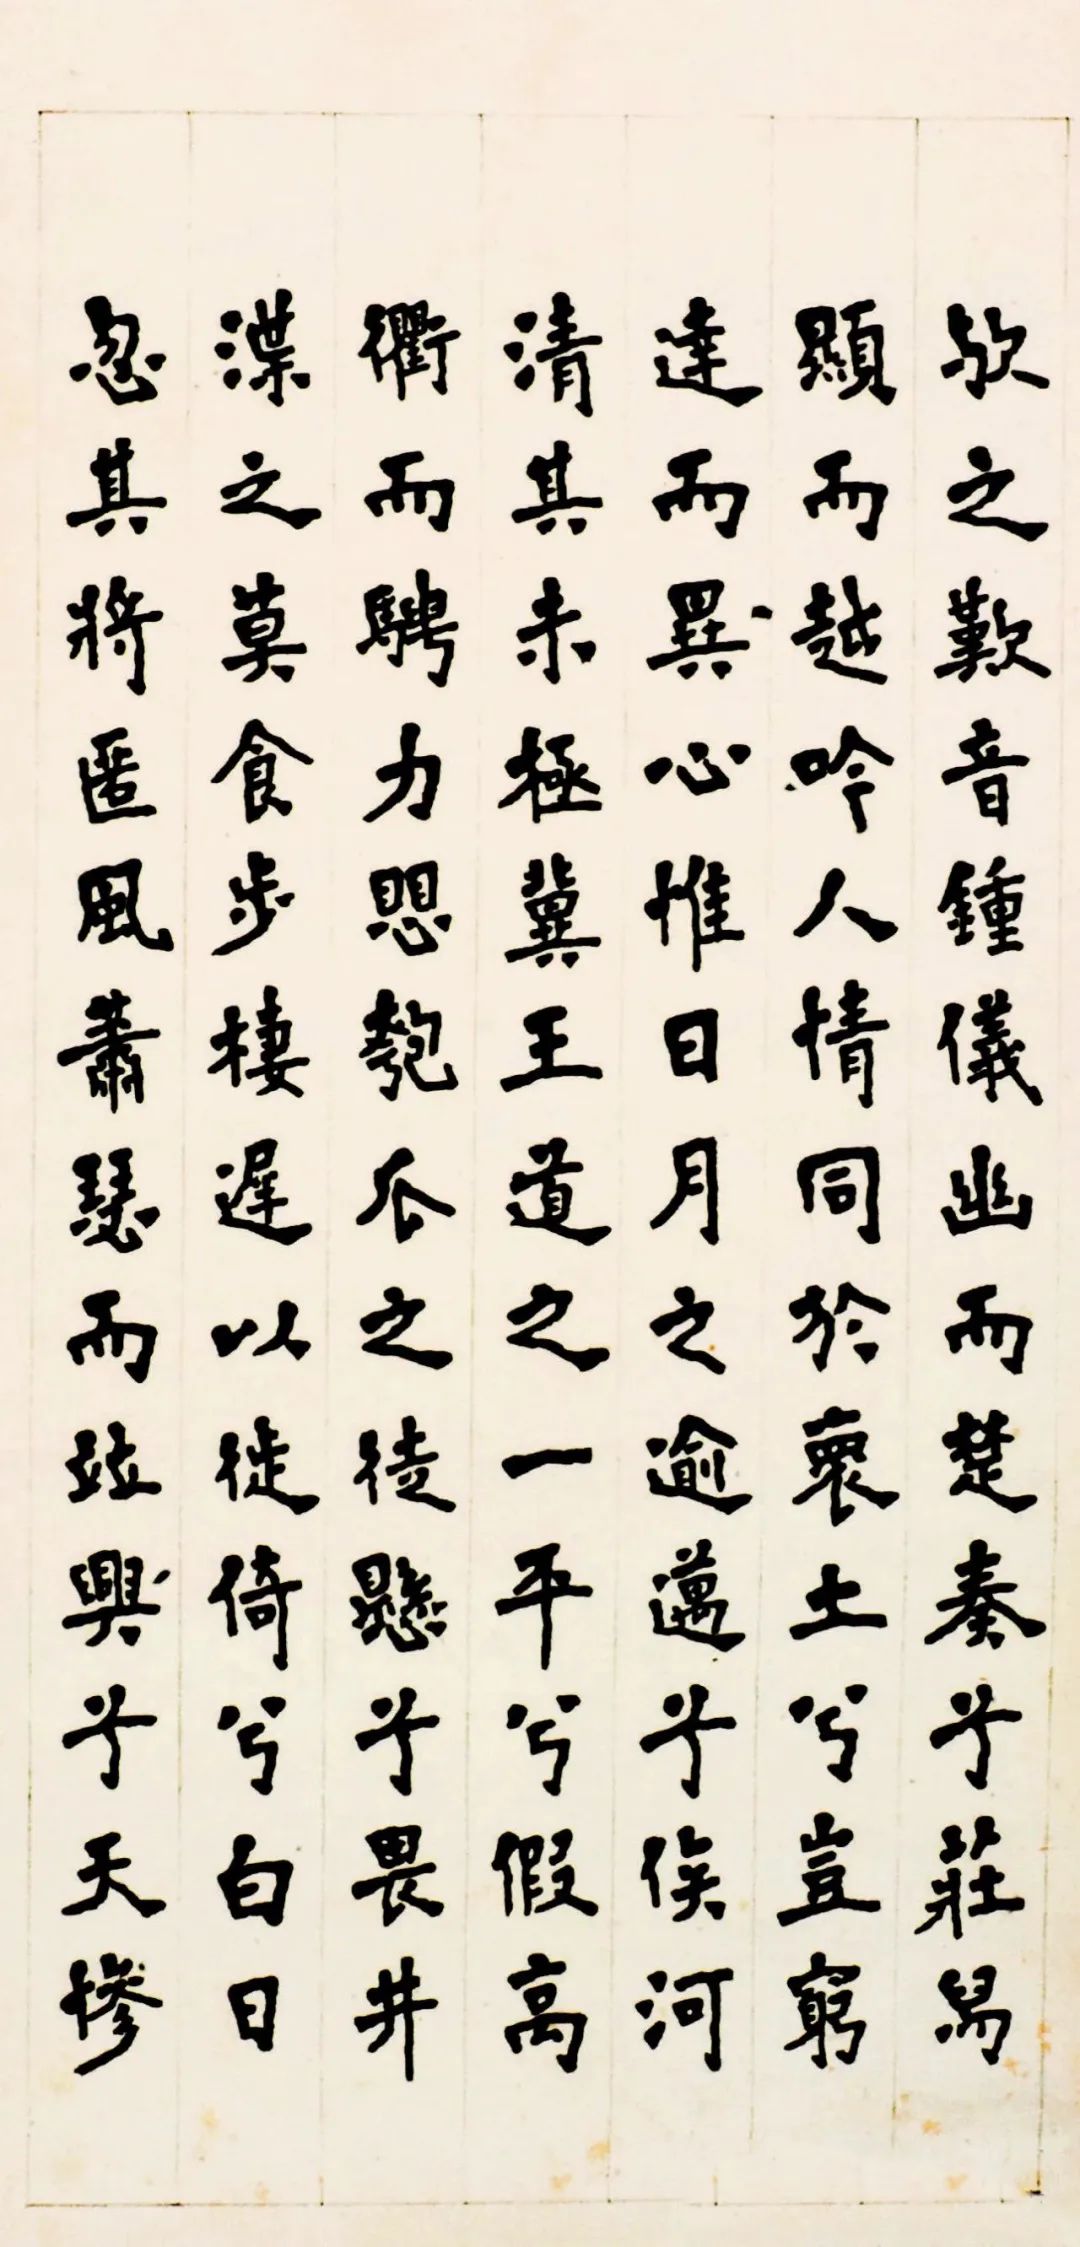 欤之歎音鍾儀幽而楚奏兮莊舄
顯而越吟人情同於褱土兮豈窮
達而異心惟日月之逾邁兮俟河
清其未極冀王道之一平兮假高
衢而騁力愳匏瓜之徒懸兮畏井
渫之莫食步棲遲以徙倚兮白日
忽其將匿風蕭瑟而竝興兮天慘